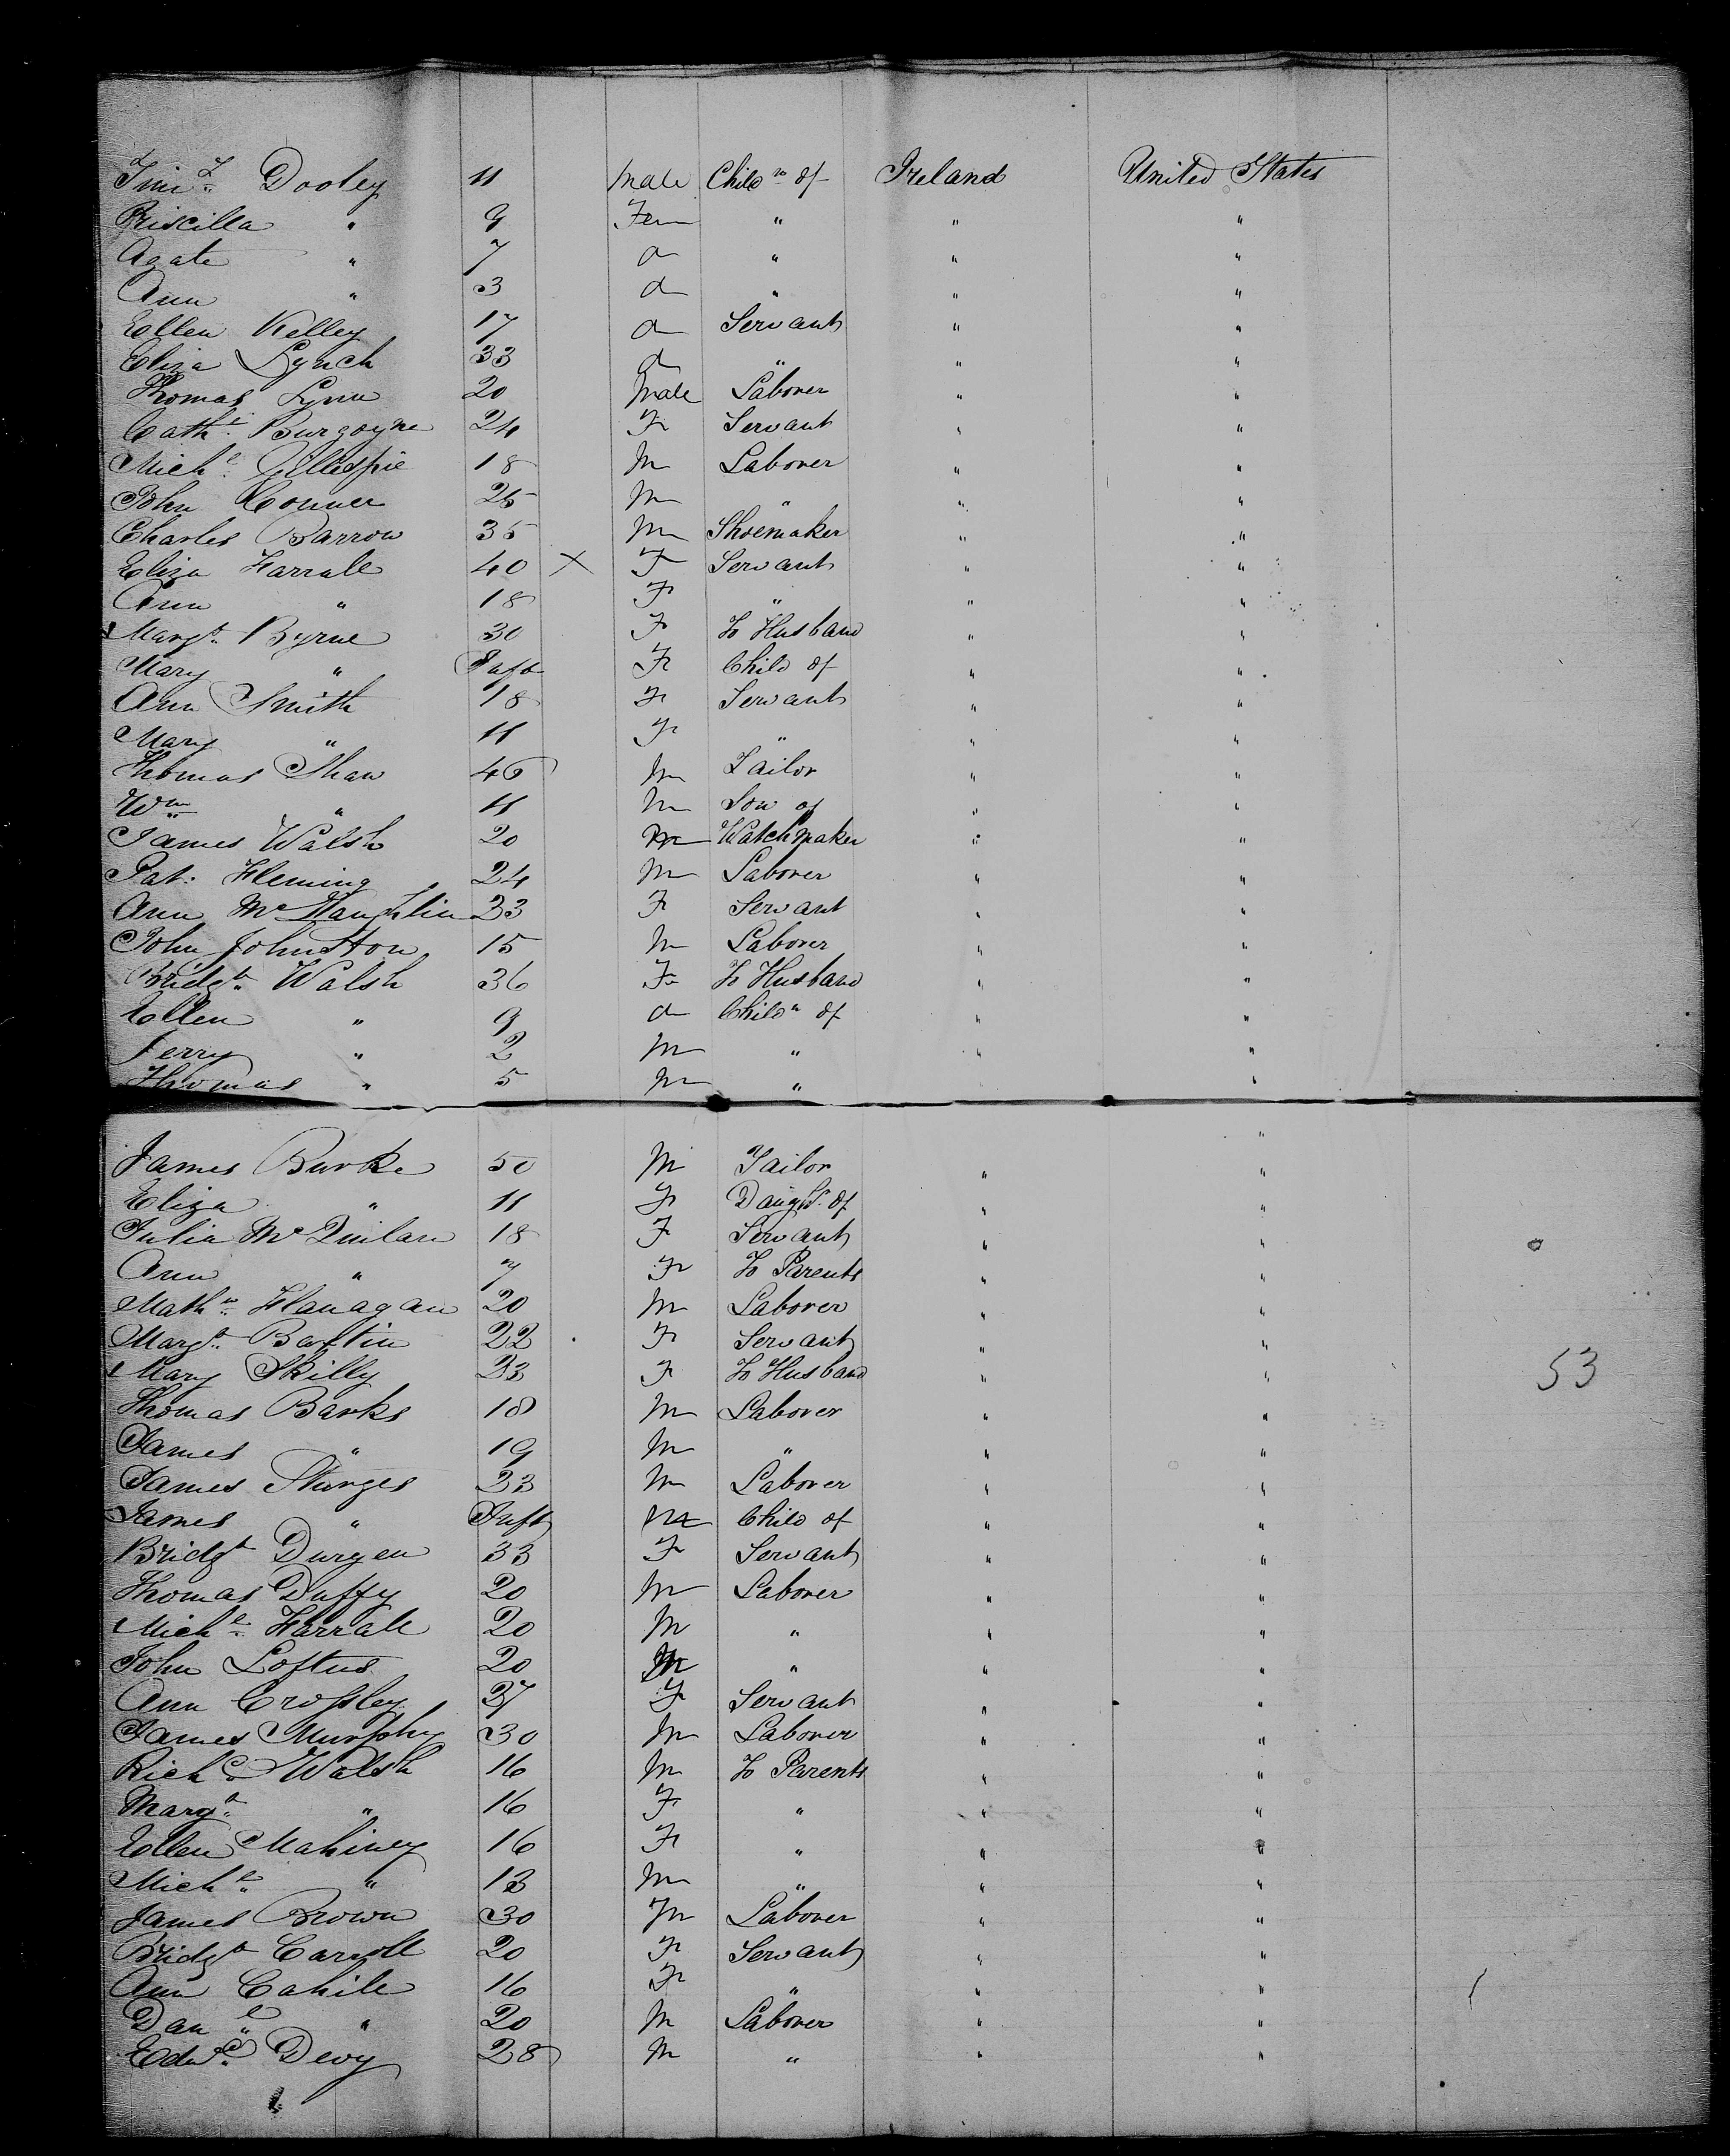 Timy. Dooley 11 Male Childn. of Ireland United States
Priscilla " 9 Fem " " "
Agate " 7 d " " "
Ann " 3 d " " "
Ellen Kelley 17 d Servant " "
Eliza Lynch 33 d " " "
Thomas Lynn 20 Male Laborer " "
Cathe. Burgoyne 24 F Servant " "
Michl. Gillespie 18 M Laborer " "
John Conner 25 M " " "
Charles Barrow 35 M Shoemaker " "
Eliza Farrall 40 X F Servant " "
Ann " 18 F " " "
Margt. Byrne 30 F To Husband " "
Mary " Inft F Child of " "
Ann Smith 18 F Servant " "
Mary " 11 F " " "
Thomas Shaw 46 M Tailor " "
Wm " 11 M Son of " "
James Walsh 20 M Watchmaker " "
Pat. Fleming 24 M Laborer " "
Ann McHaughlin 23 F Servant " "
John Johnston 15 M Laborer " "
Bridgt. Walsh 36 F To Husband " "
Ellen " 9 d Childn of " "
Jerry " 2 M " " "
Thomas " 5 M " "
"
James Burke 50 M Tailor " "
Eliza " 11 F Daught. of " "
Julia McQuilan 18 F Servant " "
Ann " 7 F To Parents " "
Mathw. Flanagan 20 M Laborer " "
Margt. Bartin 22 F Servant " "
Mary Skilly 23 F To Husband " " 53
Thomas Banks 18 M Laborer " "
James " 19 M " " "
James Sturges 23 M Laborer " "
James " Inft M Child of " "
Bridgt Durgen 33 F Servant " "
Thomas Duffy 20 M Laborer " "
Michl. Farrall 20 M " " "
John Loftus 20 M " " "
Ann Crossley 27 F Servant " "
James Murphy 30 M Laborer " "
Richd. Walsh 16 M To Parents " "
Margt. " 16 F " " "
Ellen Mahiney 16 F " " "
Michl. " 13 M " " "
James Brown 30 M Laborer " "
Bridgt Carroll 20 F Servant " "
Ann Cahill 16 F " " "
Danl. " 20 M Laborer " "
Edwd. Devy 28 M " " "